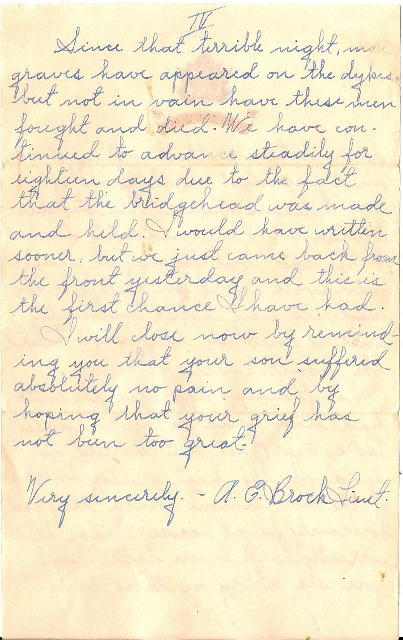 IV
Since that terrible night, more
graves have appeared on the dykes.
but not in vain have these men
fought and died. We have con-
tinued to advance steadily for
eighteen days due to the fact
that the bridgehead was made
and held. I would have written
sooner, but we just came back from
the front yesterday and this is
the first chance I have had.
I will close now by remind-
ing you that your son suffered
absolutely no pain and by
hoping that your grief has
not been too great.
Very sincerely. - A. E. Brock Lieut.